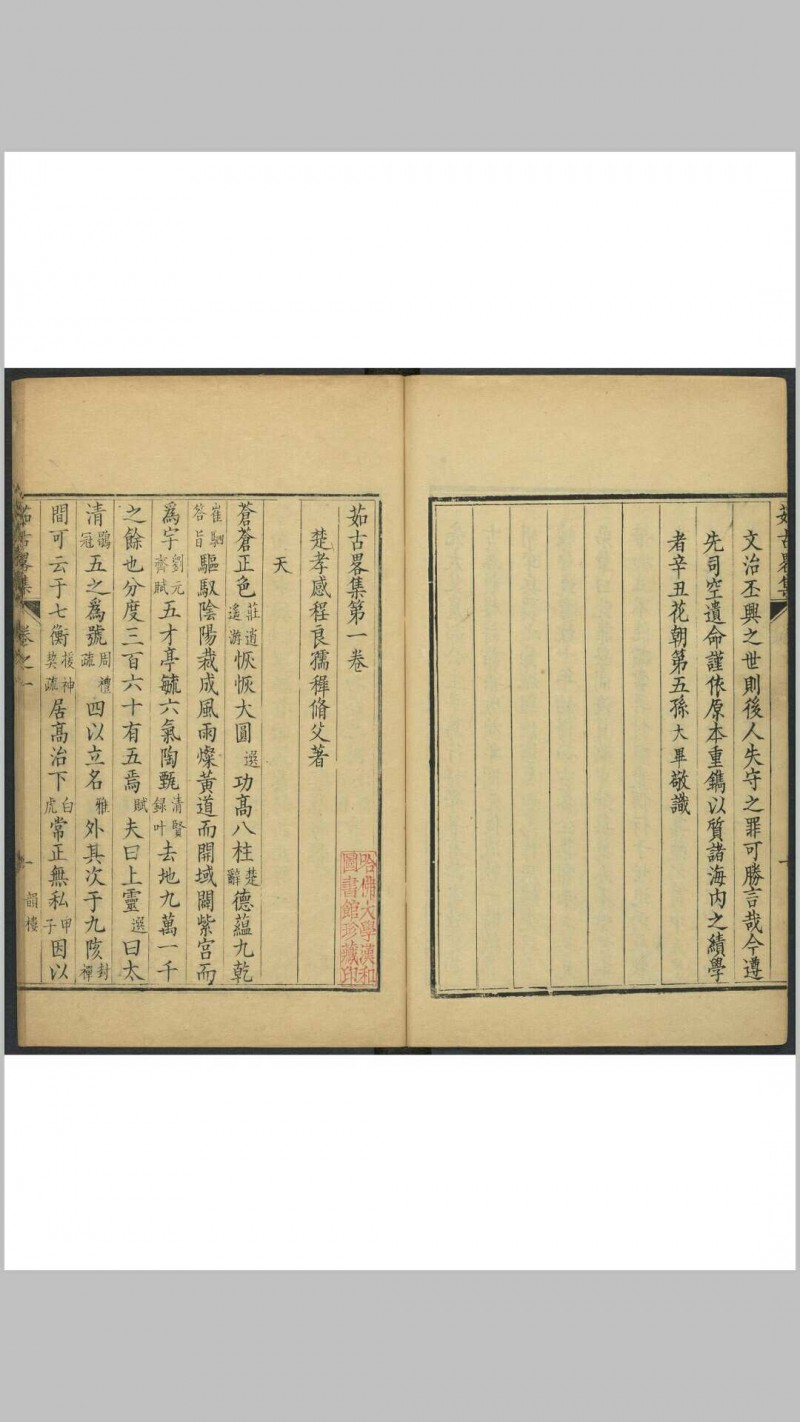 茹古畧集
文治丕興之世則後人失守之罪可勝言哉今遵
先司空遺命謹依原本重鐫以質諸海内之績學
者辛丑花朝第五孫大畢敬識
茹古畧集第一卷
楚孝感程良孺穉脩父著
天
蒼蒼正色莊逍遙游恢恢大圓選功高八柱楚辭德蘊九乾
崔駰答旨驅馭陰陽裁成風雨燦黃道而開域闢紫宮而
爲宇劉元齊賦五才亭毓六氣陶甄清賢録叶去地九萬一千
之餘也分度三百六十有五焉賦夫曰上靈選曰太
清鶡冠五之爲號周禮疏四以立名雅外其次于九陔封禪
間可云于七衡援神契疏居高治下白虎常正無私甲子因以
茹古畧集
卷之一
一
韻樓
哈佛大學漢和
圖書館珍藏印